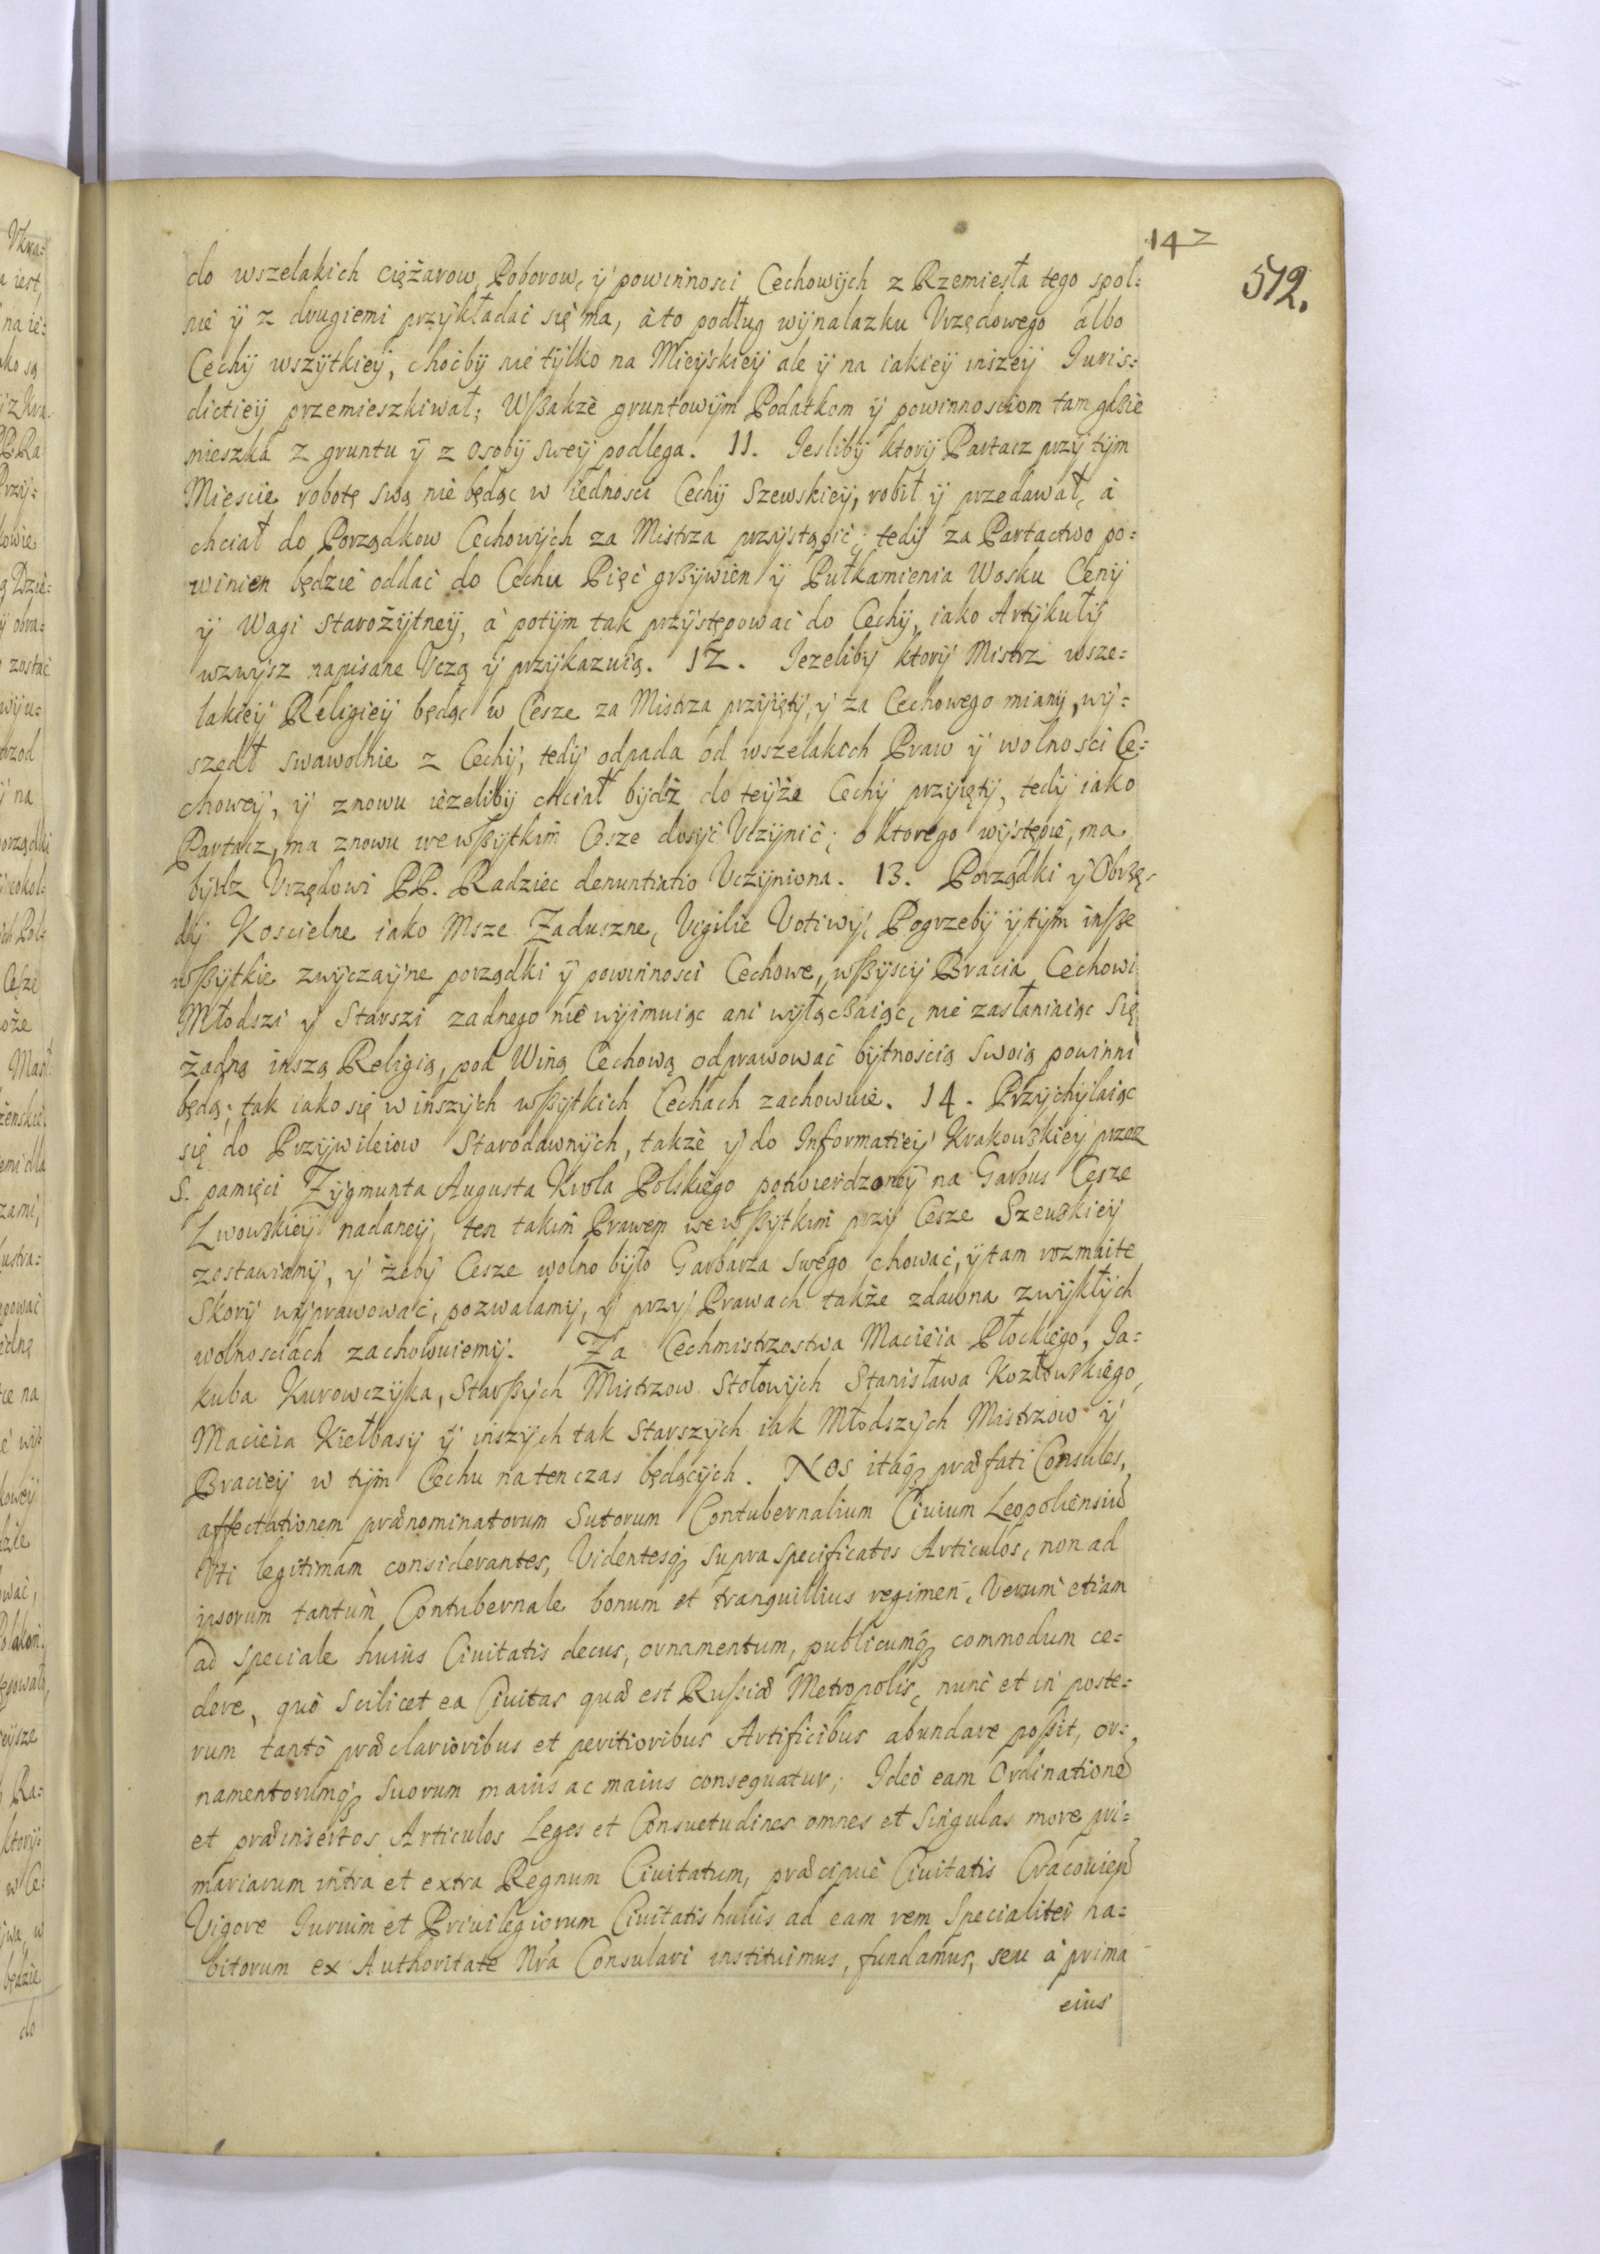 142
512.
do wszelakich ciężarow, Poborow, ÿ powinnosci Cechowÿch z Rzemiesła tego spol:
nie ÿ z drugiemi przÿkładać się ma, à to podług wÿnalazku Vrzędowego albo
Cechÿ wszÿtkieÿ, choćbÿ nie tÿlko na Mieÿskieÿ ale ÿ na iakieÿ inszeÿ Iuris:
dictieÿ przemieszkiwał; Wßakże gruntowÿm Podatkom ÿ powinnosciom tam gdßie
mieszka z gruntu ÿ z osobÿ sweÿ podlega. 11. Ieslibÿ ktorÿ Partacz przÿ tÿm
Miescie robotę swą nie będąc w iednosci Cechÿ Szewskieÿ, robił ÿ przedawał, à
chciał do Porządkow Cechowÿch za Mistrza przÿstąpić; tedÿ za Partactwo po:
winien będzie oddać do Cechu Pięć grßÿwien ÿ Pułkamienia Wosku Cenÿ
ÿ Wagi starożÿtneÿ, à potÿm tak przÿstępować do Cechÿ, iako Artÿkułÿ
wzwÿsz napisane Vczą ÿ przÿkazuią. 12. Iezelibÿ ktorÿ Mistrz wsze:
lakieÿ Religieÿ będąc w Cesze za Mistrza przÿiętÿ, ÿ za Cechowego mianÿ, wÿ:
szedł swawolnie z Cechÿ, tedÿ odpada od wszelakich Praw ÿ wolnosci Ce:
choweÿ, ÿ znowu ieżelibÿ chciał bÿdź do teÿże Cechÿ przÿiętÿ, tedÿ iako
Partacz, ma znowu we wßÿtkim Cesze dosÿć Vczÿnić; o ktorego wÿstępie, ma
bÿdz Vrzędowi PP. Radziec denuntiatio Vczÿniona. 13. Porządki ÿ Obrzę:
dÿ Koscielne iako Msze Zaduszne, Vigilie Votiwÿ, Pogrzebÿ ÿ tÿm inße
wßÿtkie zwÿczaÿne porządki ÿ powinnosci Cechowe, wßÿscÿ Bracia Cechowi
Młodszi ÿ Starszi zadnego nie wÿimuiąc ani wÿłączaiąc, nie zasłaniaiąc się
żadną inszą Religią, pod Winą Cechową odprawować bÿtnoscią swoią powinni
będą; tak iako się w inszÿch wßÿtkich Cechach zachowuie. 14. Przÿchÿlaiąc
się do Przÿwileiow Starodawnÿch, także ÿ do Informatieÿ Krakowskieÿ przez
S. pamięci Zÿgmunta Augusta Krola Polskiego potwierdzoneÿ na Garbus Cesze
Lwowskieÿ nadaneÿ, ten takim Prawem we wßÿtkim przÿ Cesze Szewskieÿ
zostawiamÿ, ÿ żebÿ Cesze wolno bÿło Garbarza swego chować, ÿ tam rozmaite
Skorÿ wÿprawować, pozwalamÿ, ÿ przÿ Prawach także zdawna zwÿkłÿch
wolnosciach zachowuiemÿ. Za Cechmistrzostwa Macieia Płockiego, Ia:
kuba Kurowczÿka, Starßÿch Mistrzow Stołowÿch Stanisława Kozłowskiego,
Macieia Kiełbasÿ ÿ inszÿch tak Starszÿch iak Młodszÿch Mistrzow ÿ
Bracieÿ w tÿm Cechu na ten czas będącÿch. Nos itaq́ præfati Consules,
affectationem prænominatorum Sutorum Contubernalium Ciuium Leopoliensiū
Vti legitimam considerantes, Videntesq́ supra specificatos Articulos, non ad
ipsorum tantum Contubernale bonum et tranquillius regimen, Verum etiam
ad speciale huius Ciuitatis decus, ornamentum, publicumq́ commodum ce:
dere, quò scilicet ea Ciuitas quæ est Rußiæ Metropolis, nunc et in poste:
rum tantò præclarioribus et peritioribus Artificibus abundare poßit, or:
namentorumq́ suorum maius ac maius consequatur; Ideò eam Ordinationē
et præinsertos Articulos Leges et Consuetudines omnes et Singulas more pri:
mariarum intra et extra Regnum Ciuitatum, præcipuè Ciuitatis Cracouien̄
Vigore Iurium et Priuilegiorum Ciuitatis huius ad eam rem Specialiter ha:
bitorum ex Authoritate Nr̄a Consulari instituimus, fundamus, seu à prima
eius